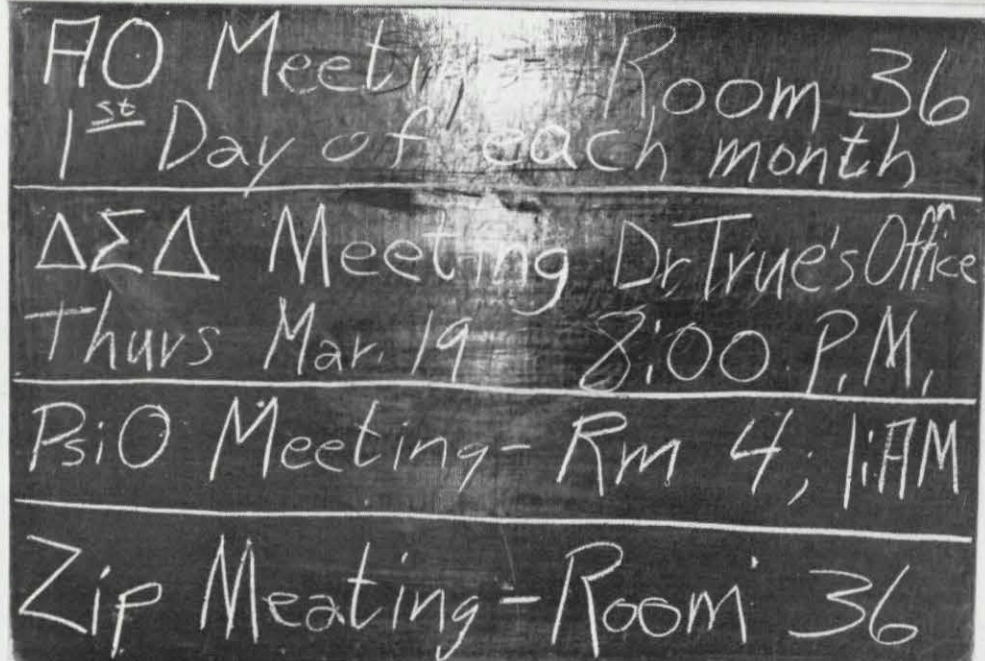 AO Meeting - Room 36
1st Day of each month
ΔΣΔ Meeting Dr True's Office
Thurs Mar. 19 - 8:00 P.M.
PsiO Meeting - Rm 4; 1:AM
Zip Meating - Room 36